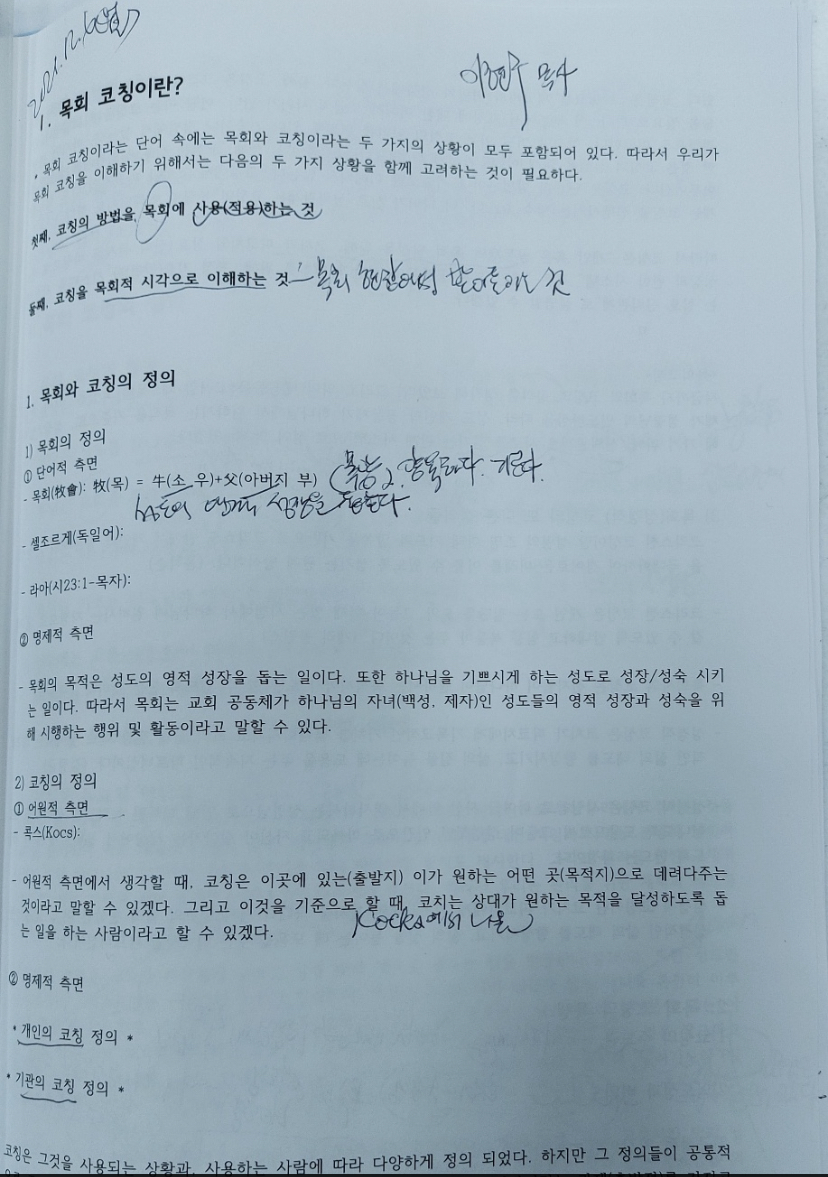 2021. 12. 6(월)
목사
1. 목회 코칭이란?
. 목회 코칭이라는 단어 속에는 목회와 코칭이라는 두 가지의 상황이 모두 포함되어 있다. 따라서 우리가
목회 코칭을 이해하기 위해서는 다음의 두 가지 상황을 함께 고려하는 것이 필요하다.
첫째, 코칭의 방법을 목회에 사용(적용)하는 것
둘째, 코칭을 목회적 시각으로 이해하는 것 - 목회 현장에서 받아들이는 것
1. 목회와 코칭의 정의
1) 목회의 정의
① 단어적 측면
- 목회(牧會): 牧(목) = 牛(소 우)+父(아버지 부) 기른다.
성도의 영적 성장을 돕는다.
- 셀조르게(독일어):
- 라아(시23:1-목자):
② 명제적 측면
- 목회의 목적은 성도의 영적 성장을 돕는 일이다. 또한 하나님을 기쁘시게 하는 성도로 성장/성숙 시키
는 일이다. 따라서 목회는 교회 공동체가 하나님의 자녀(백성, 제자)인 성도들의 영적 성장과 성숙을 위
해 시행하는 행위 및 활동이라고 말할 수 있다.
2) 코칭의 정의
① 어원적 측면
- 콕스(Kocs):
- 어원적 측면에서 생각할 때, 코칭은 이곳에 있는(출발지) 이가 원하는 어떤 곳(목적지)으로 데려다주는
것이라고 말할 수 있겠다. 그리고 이것을 기준으로 할 때, 코치는 상대가 원하는 목적을 달성하도록 돕
는 일을 하는 사람이라고 할 수 있겠다.
에서 나옴
② 명제적 측면
* 개인의 코칭 정의 *
* 기관의 코칭 정의 *
코칭은 그것을 사용되는 상황과, 사용하는 사람에 따라 다양하게 정의 되었다. 하지만 그 정의들이 공통적